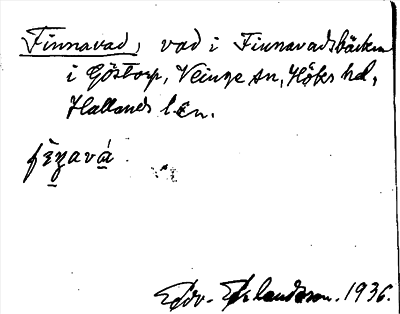 Finnavad, vad i Finnavadsbäcken
i Göstorp, Veinge sn, Höks hd,
Hallands län.
Edv. Erlandsson. 1936.